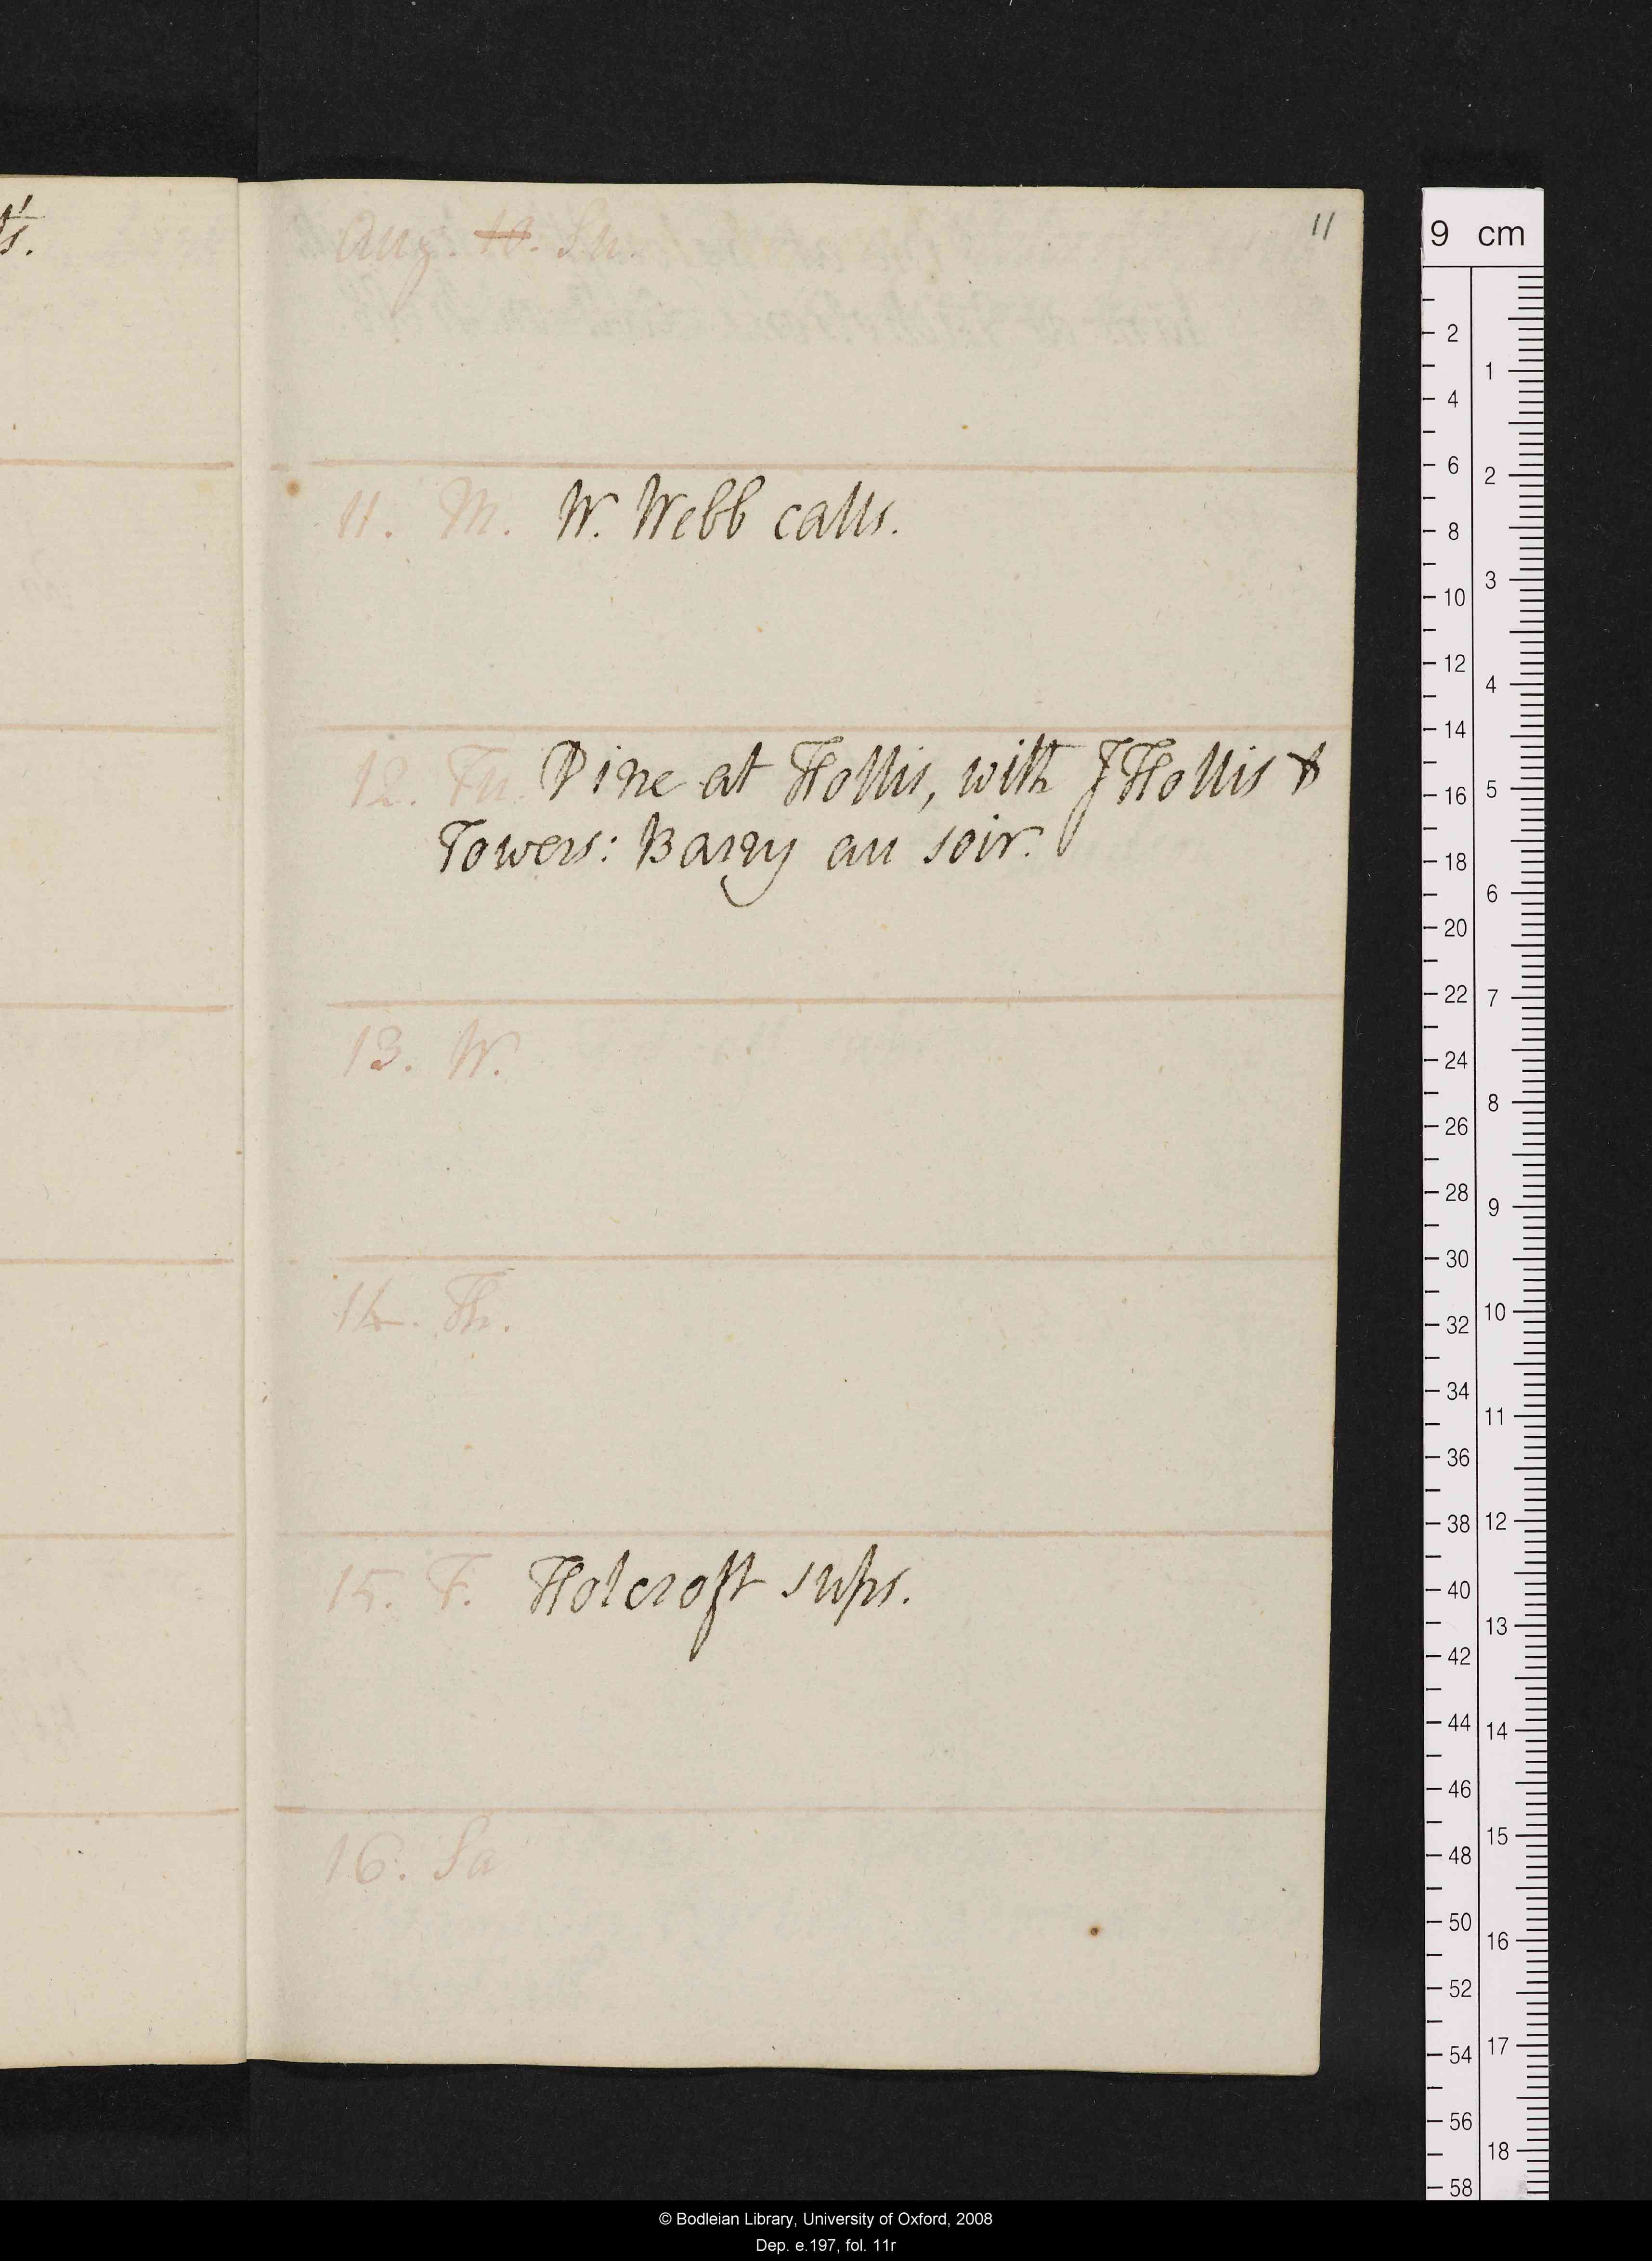 11
Aug. 10. Su.
11. M. W. Webb calls.
12. Tu. Dine at Hollis, with J Hollis &
Towers: Barry au soir.
13. W.
14. Th.
15. F. Holcroft sups.
16. Sa
9 cm
2
4
6
8
10
12
14
16
18
20
22
24
26
28
30
32
34
36
38
40
42
44
46
48
50
52
54
56
58
1
2
3
4
5
6
7
8
9
10
11
12
13
14
15
16
17
18
© Bodleian Library, University of Oxford, 2008
Dep. e.197, fol. 11r